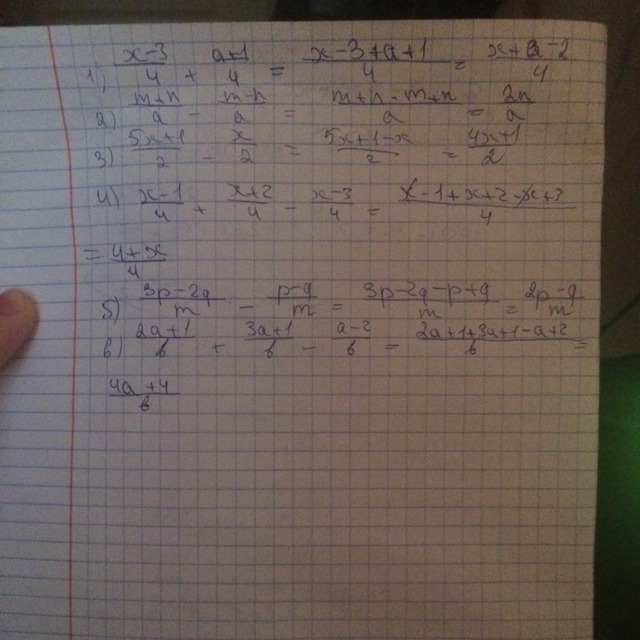 1) (x-3)/4 + (a+1)/4 = (x-3+a+1)/4 = (x+a-2)/4
2) (m+n)/a - (m-n)/a = (m+n-m+n)/a = 2n/a
3) (5x+1)/2 - x/2 = (5x+1-x)/2 = (4x+1)/2
4) (x-1)/4 + (x+2)/4 - (x-3)/4 = (x-1+x+2-x+3)/4
= (4+x)/4
5) (3p-2q)/m - (p-q)/m = (3p-2q-p+q)/m = (2p-q)/m
6) (2a+1)/b + (3a+1)/b - (a-2)/b = (2a+1+3a+1-a+2)/b =
(4a+4)/b